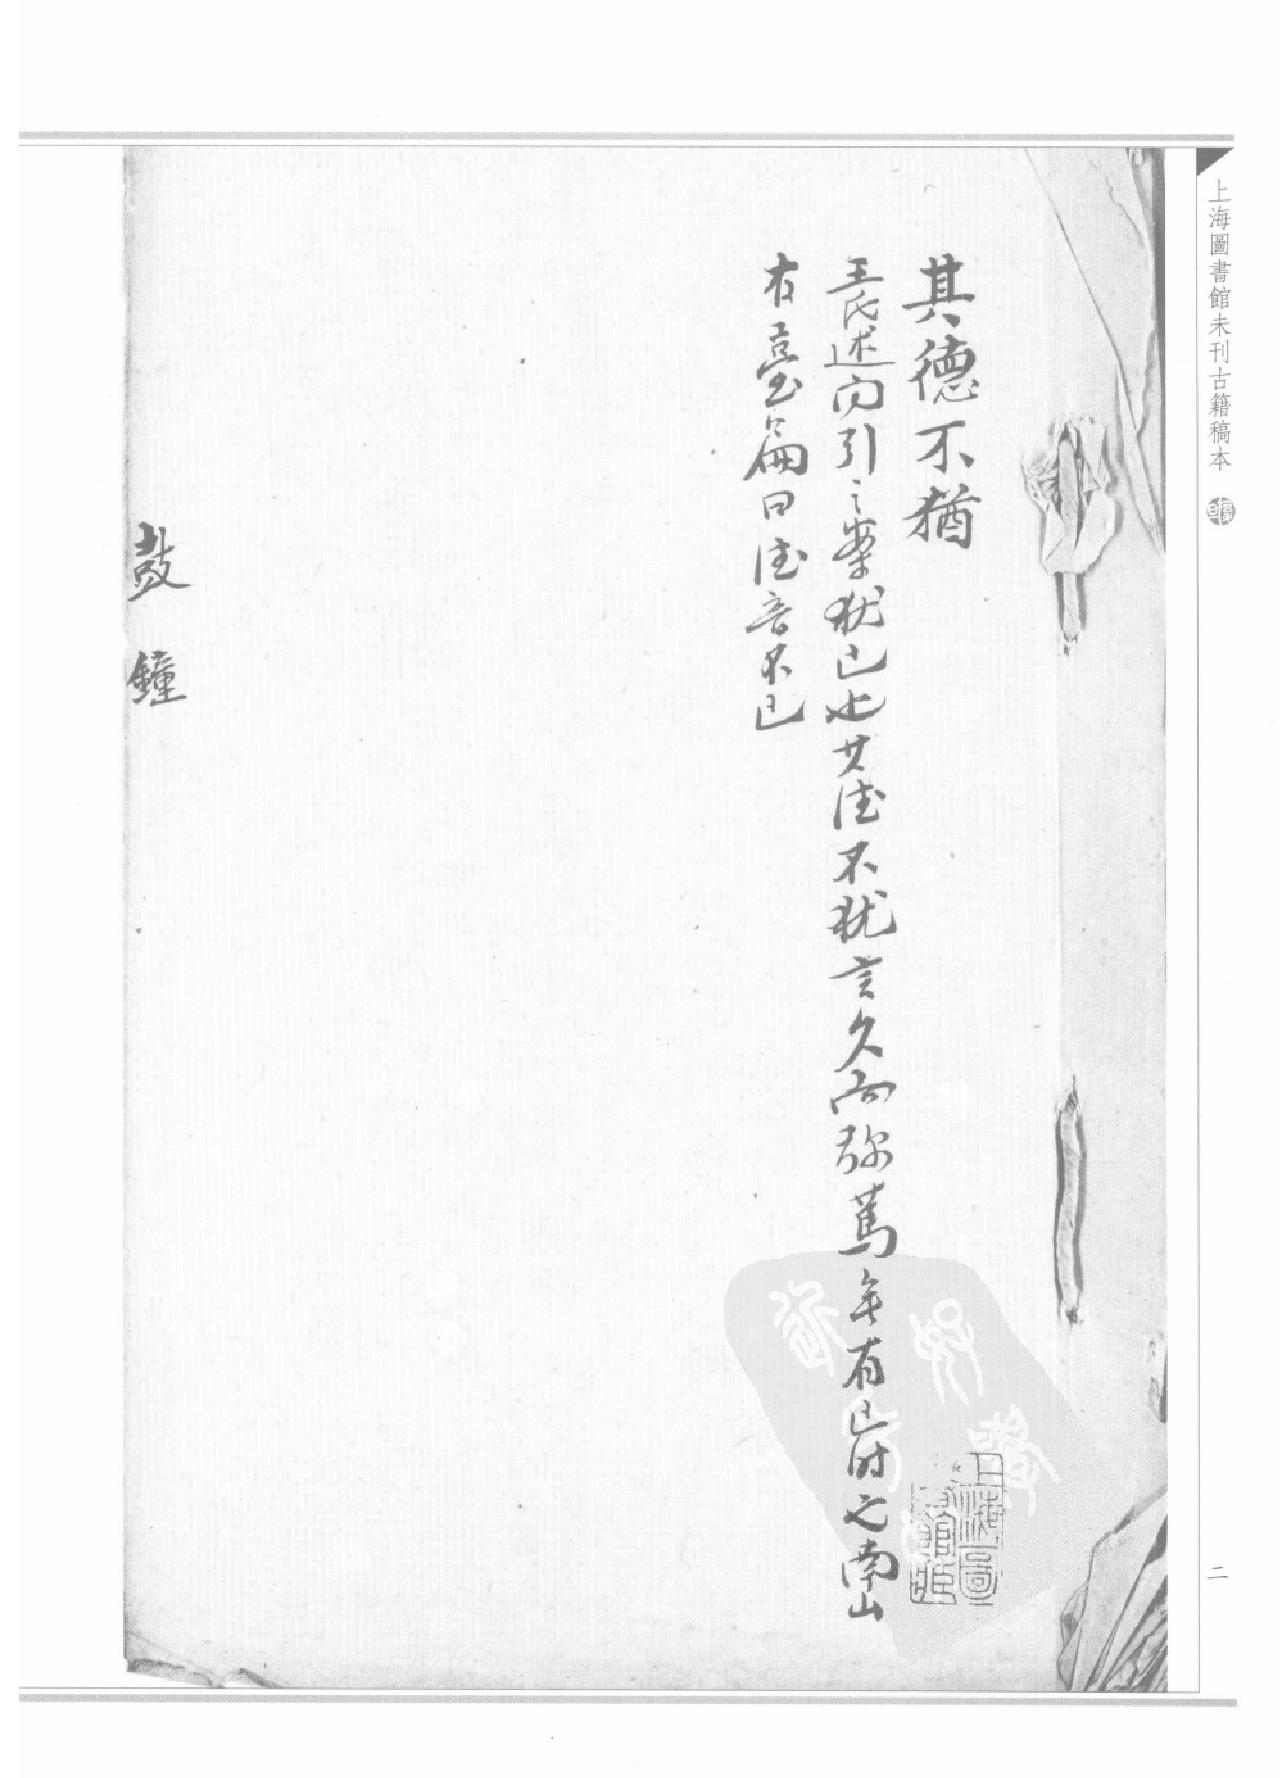 上海圖書館未刊古籍稿本
二
其德不猶
王氏述聞引之案犹已也其德不犹言久而弥篤無有已时也南山
有臺篇曰德音不已
鼓鐘
上海圖書館藏